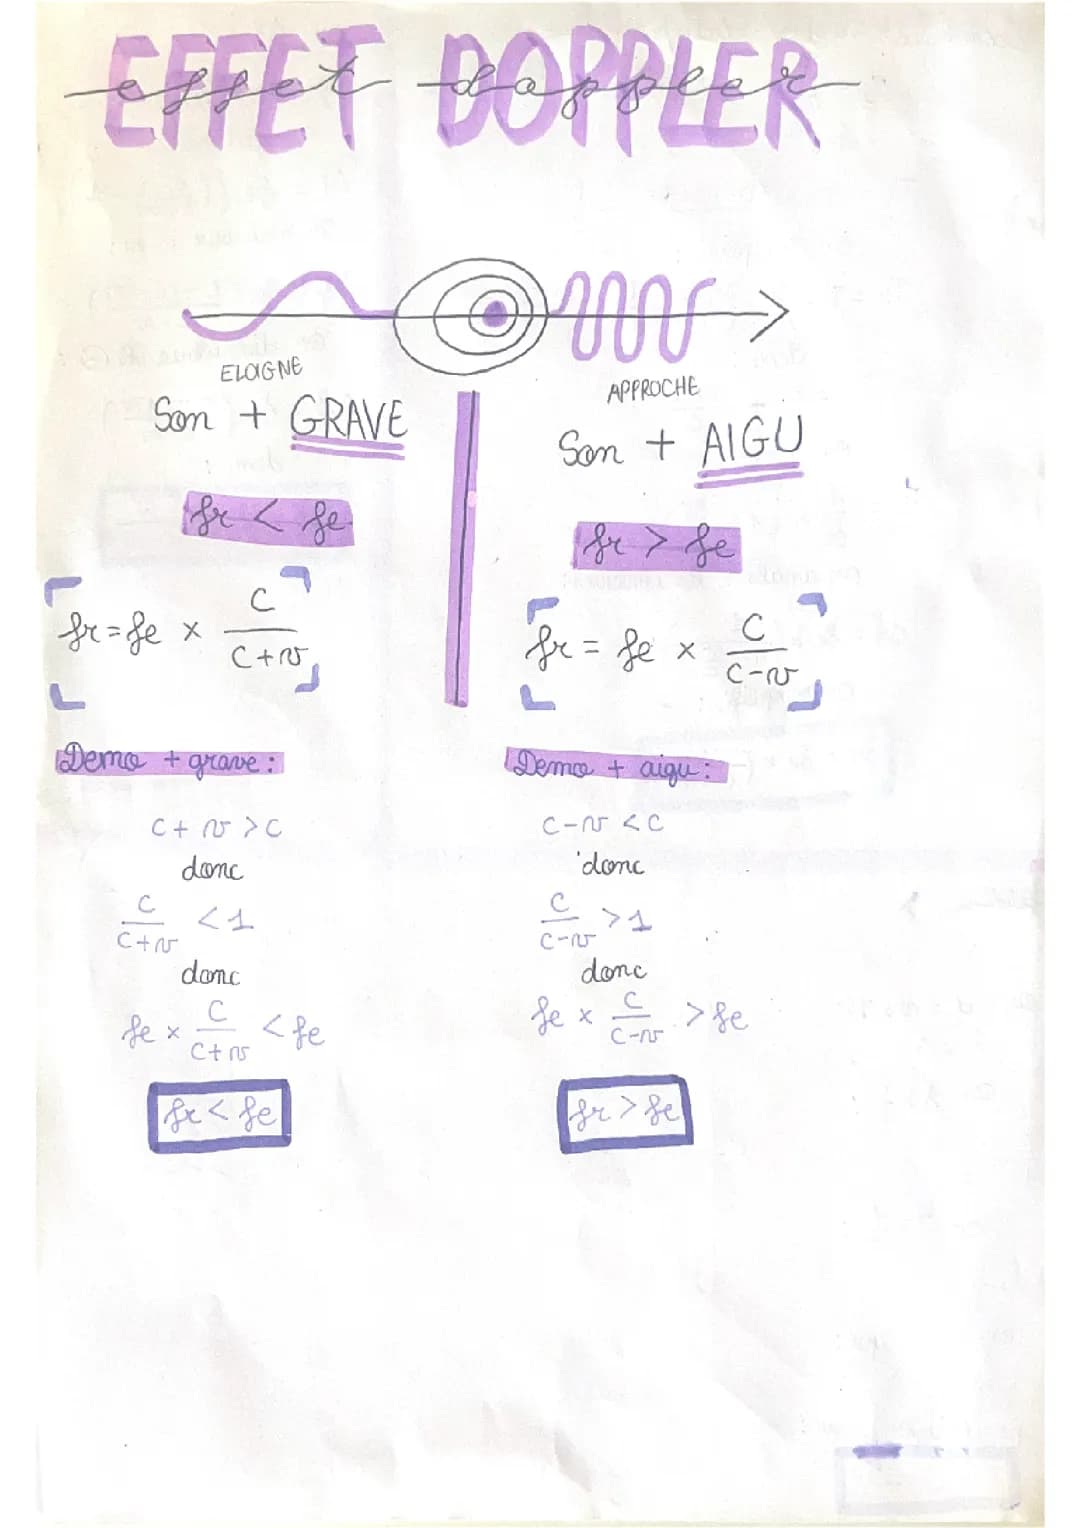 EFFET DOPPLER
effet doppler
ELOIGNE
Son + GRAVE
fr < fe
fr = fe × C / C+v
Demo + grave :
C + v > C
donc
C / C+v < 1
donc
fe × C / C+v < fe
fr < fe
APPROCHE
Son + AIGU
fr > fe
fr = fe × C / C-v
Demo + aigu :
C-v < C
donc
C / C-v > 1
donc
fe × C / C-v > fe
fr > fe